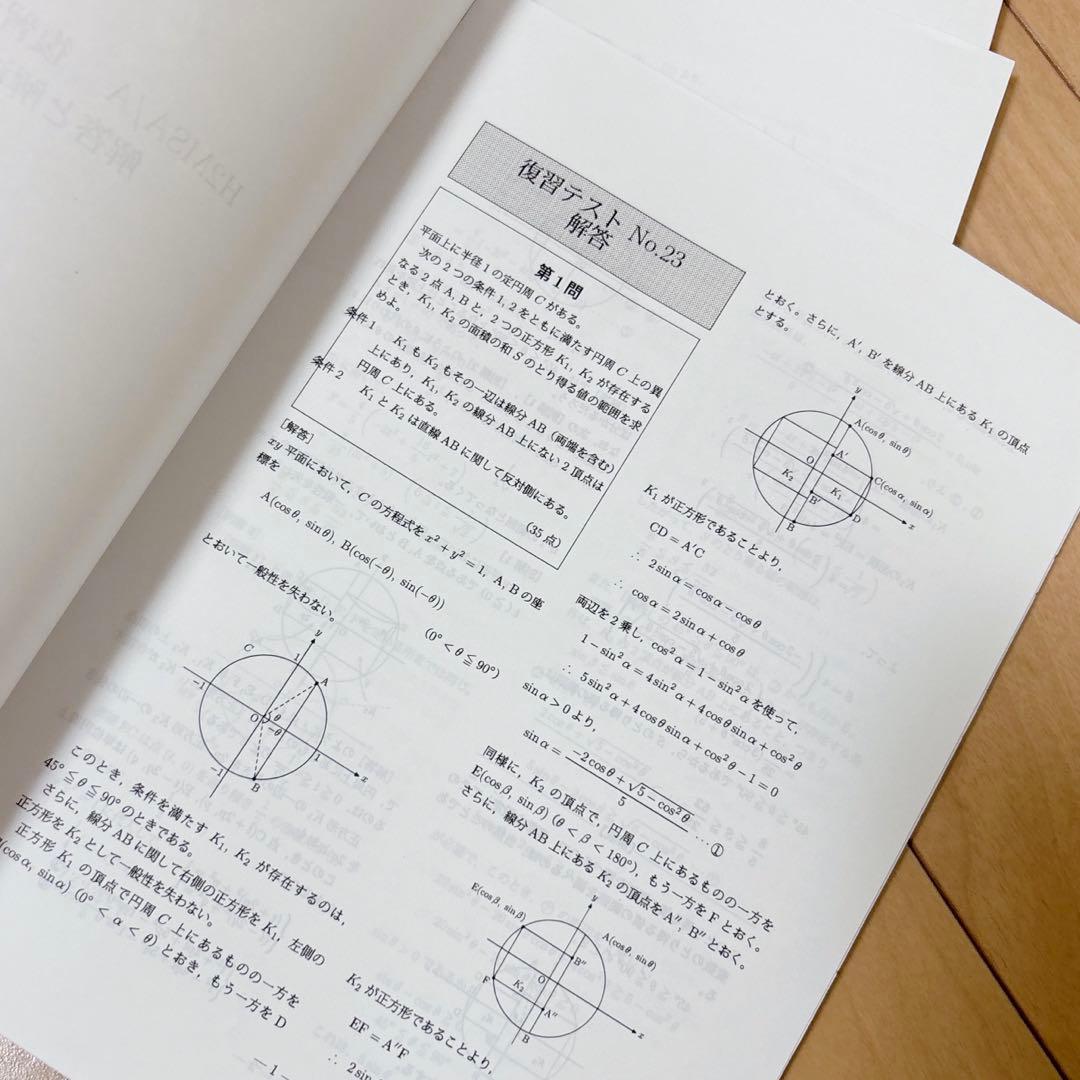 復習テスト No.23
解答
第1問
平面上に半径1の定円周Cがある。
次の2つの条件1, 2をともに満たす円周C上の異
なる2点A, Bと, 2つの正方形K₁, K₂が存在する
とき, K₁, K₂の面積の和Sのとり得る値の範囲を求
めよ。
条件1
K₁もK₂もその一辺は線分AB(両端を含む)
上にあり, K₁, K₂の線分AB上にない2頂点は
円周C上にある。
条件2
K₁とK₂は直線ABに関して反対側にある。
(35点)
[解答]
xy平面において, Cの方程式をx²+y²=1, A, Bの座
標を
A(cosθ, sinθ), B(cos(−θ), sin(−θ))
(0°<θ≦90°)
とおいて一般性を失わない。
y
C
1
A
−1
O
θ
−θ
1
x
−1
B
このとき, 条件を満たすK₁, K₂が存在するのは,
45°≦θ≦90°のときである。
さらに, 線分ABに関して右側の正方形をK₁, 左側の
正方形をK₂として一般性を失わない。
正方形K₁の頂点で円周C上にあるものの一方を
(cosα, sinα) (0°<α<θ)とおき, もう一方をD
とおく。さらに, A′, B′を線分AB上にあるK₁の頂点
とする。
y
A(cosθ, sinθ)
O
A′
C(cosα, sinα)
K₂
K₁
B′
D
B
x
K₁が正方形であることより,
CD=A′C
∴ 2sinα=cosα−cosθ
∴ cosα=2sinα+cosθ
両辺を2乗し, cos²α=1−sin²αを使って,
1−sin²α=4sin²α+4cosθsinα+cos²θ
∴ 5sin²α+4cosθsinα+cos²θ−1=0
sinα>0より,
sinα=(−2cosθ+√(5−cos²θ))/5 ……①
同様に, K₂の頂点で, 円周C上にあるものの一方を
E(cosβ, sinβ) (θ<β<180°), もう一方をFとおく。
さらに, 線分AB上にあるK₂の頂点をA″, B″とおく。
y
E(cosβ, sinβ)
A(cosθ, sinθ)
B″
O
F
K₂
A″
B
x
K₂が正方形であることより,
EF=A″F